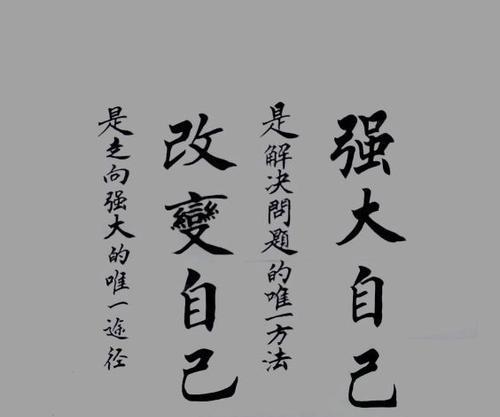 强大自己
是解决問題的唯一方法
改變自己
是走向强大的唯一途径